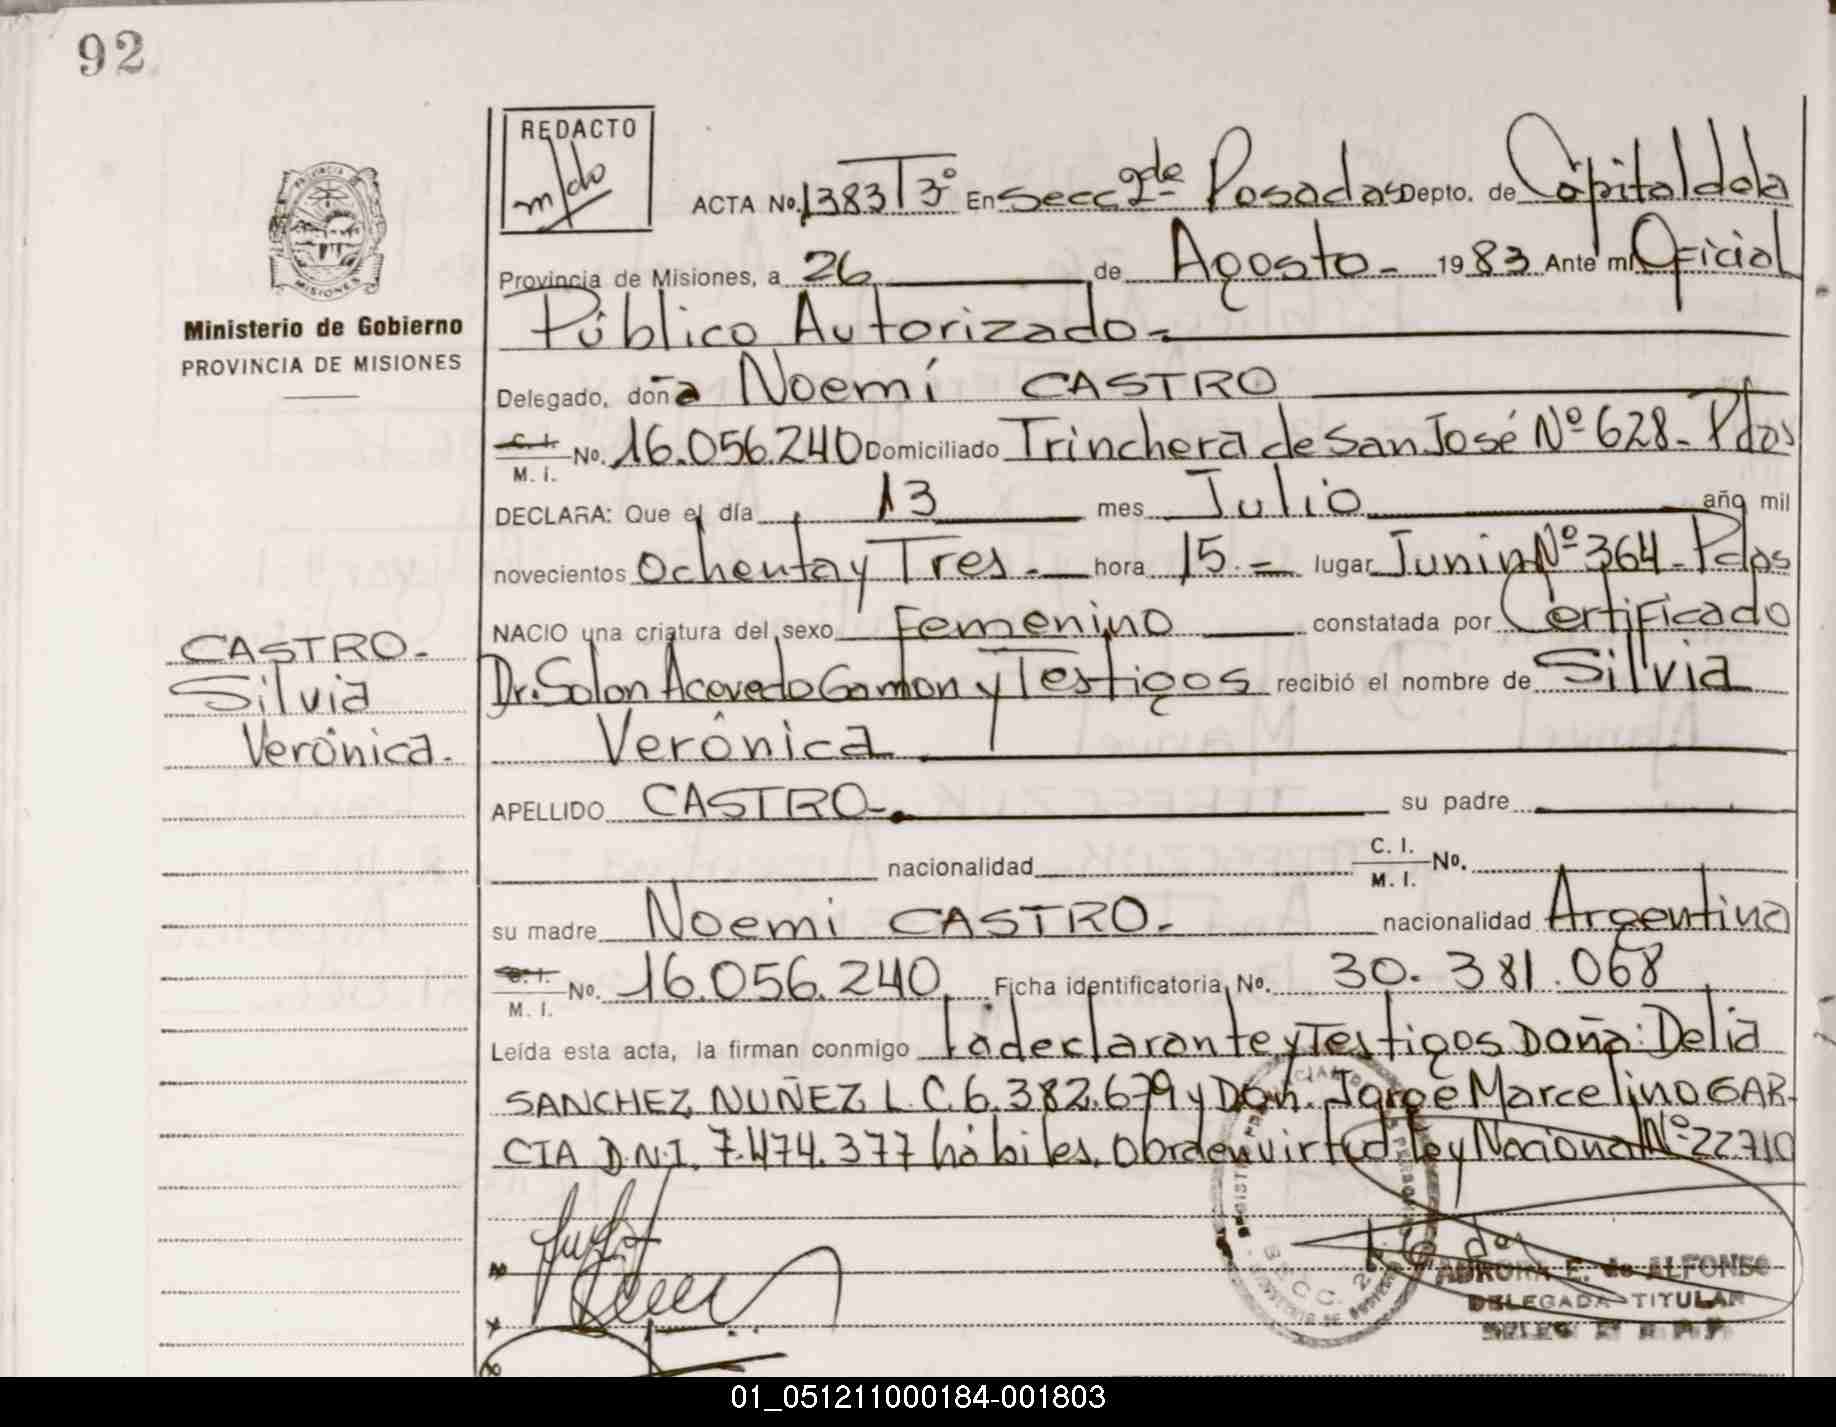 92
REDACTO
m/do
ACTA No. 1383 T3º En Secc 2de Posadas Depto. de Capital de la
Provincia de Misiones, a 26 de Agosto.- 1983 Ante mi Oficial
Público Autorizado.=
Delegado, doña Noemí CASTRO
C. I.
M. I.
No. 16.056.240 Domiciliado Trinchera de San José Nº 628.- Pdas
DECLARA: Que el día 13 mes Julio año mil
novecientos Ochenta y Tres.- hora 15.= lugar Junin Nº 364.- Pdas
NACIO una criatura del sexo Femenino constatada por Certificado
Dr. Solon Acevedo Gamon y Testigos recibió el nombre de Silvia
Verónica
APELLIDO CASTRO-. su padre
nacionalidad C. I.
M. I.
No.
su madre Noemi CASTRO.- nacionalidad Argentina
M. I.
No. 16.056.240 Ficha identificatoria No. 30.381.068
Leída esta acta, la firman conmigo la declarante y Testigos Doña: Delia
SANCHEZ NUÑEZ L.C. 6.382.679 y Don. Jorge Marcelino GAR-
CIA D.N.I. 7.474.377 hábiles. Obra en virtud ley Nacional Nº 22710
Ministerio de Gobierno
PROVINCIA DE MISIONES
CASTRO.-
Silvia
Verónica.-
PROVINCIA DE
MISIONES
SECC. 2
AURORA E. de ALFONSO
DELEGADA TITULAR
01_051211000184-001803